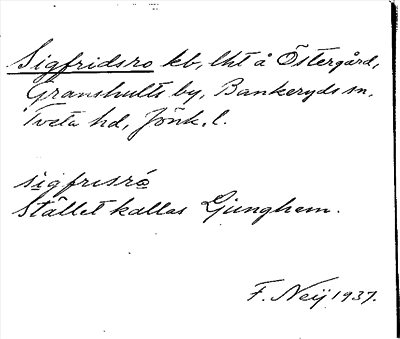 Sigfridsro kb, lht å Östergård,
Granshults by, Bankeryds sn,
Tveta hd, Jönk. l.
sigfrisró
Stället kallas Ljunghem.
F. Neij 1937.